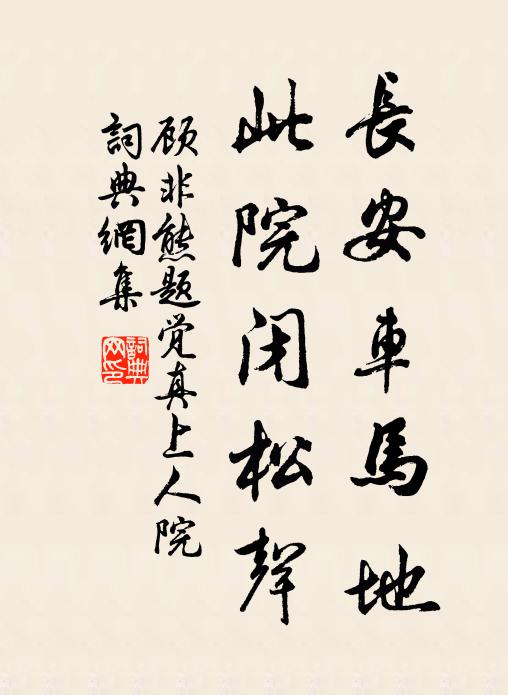 長安車馬地
此院闭松聲
顾非熊题覚真上人院
詞典網集
詞典网印